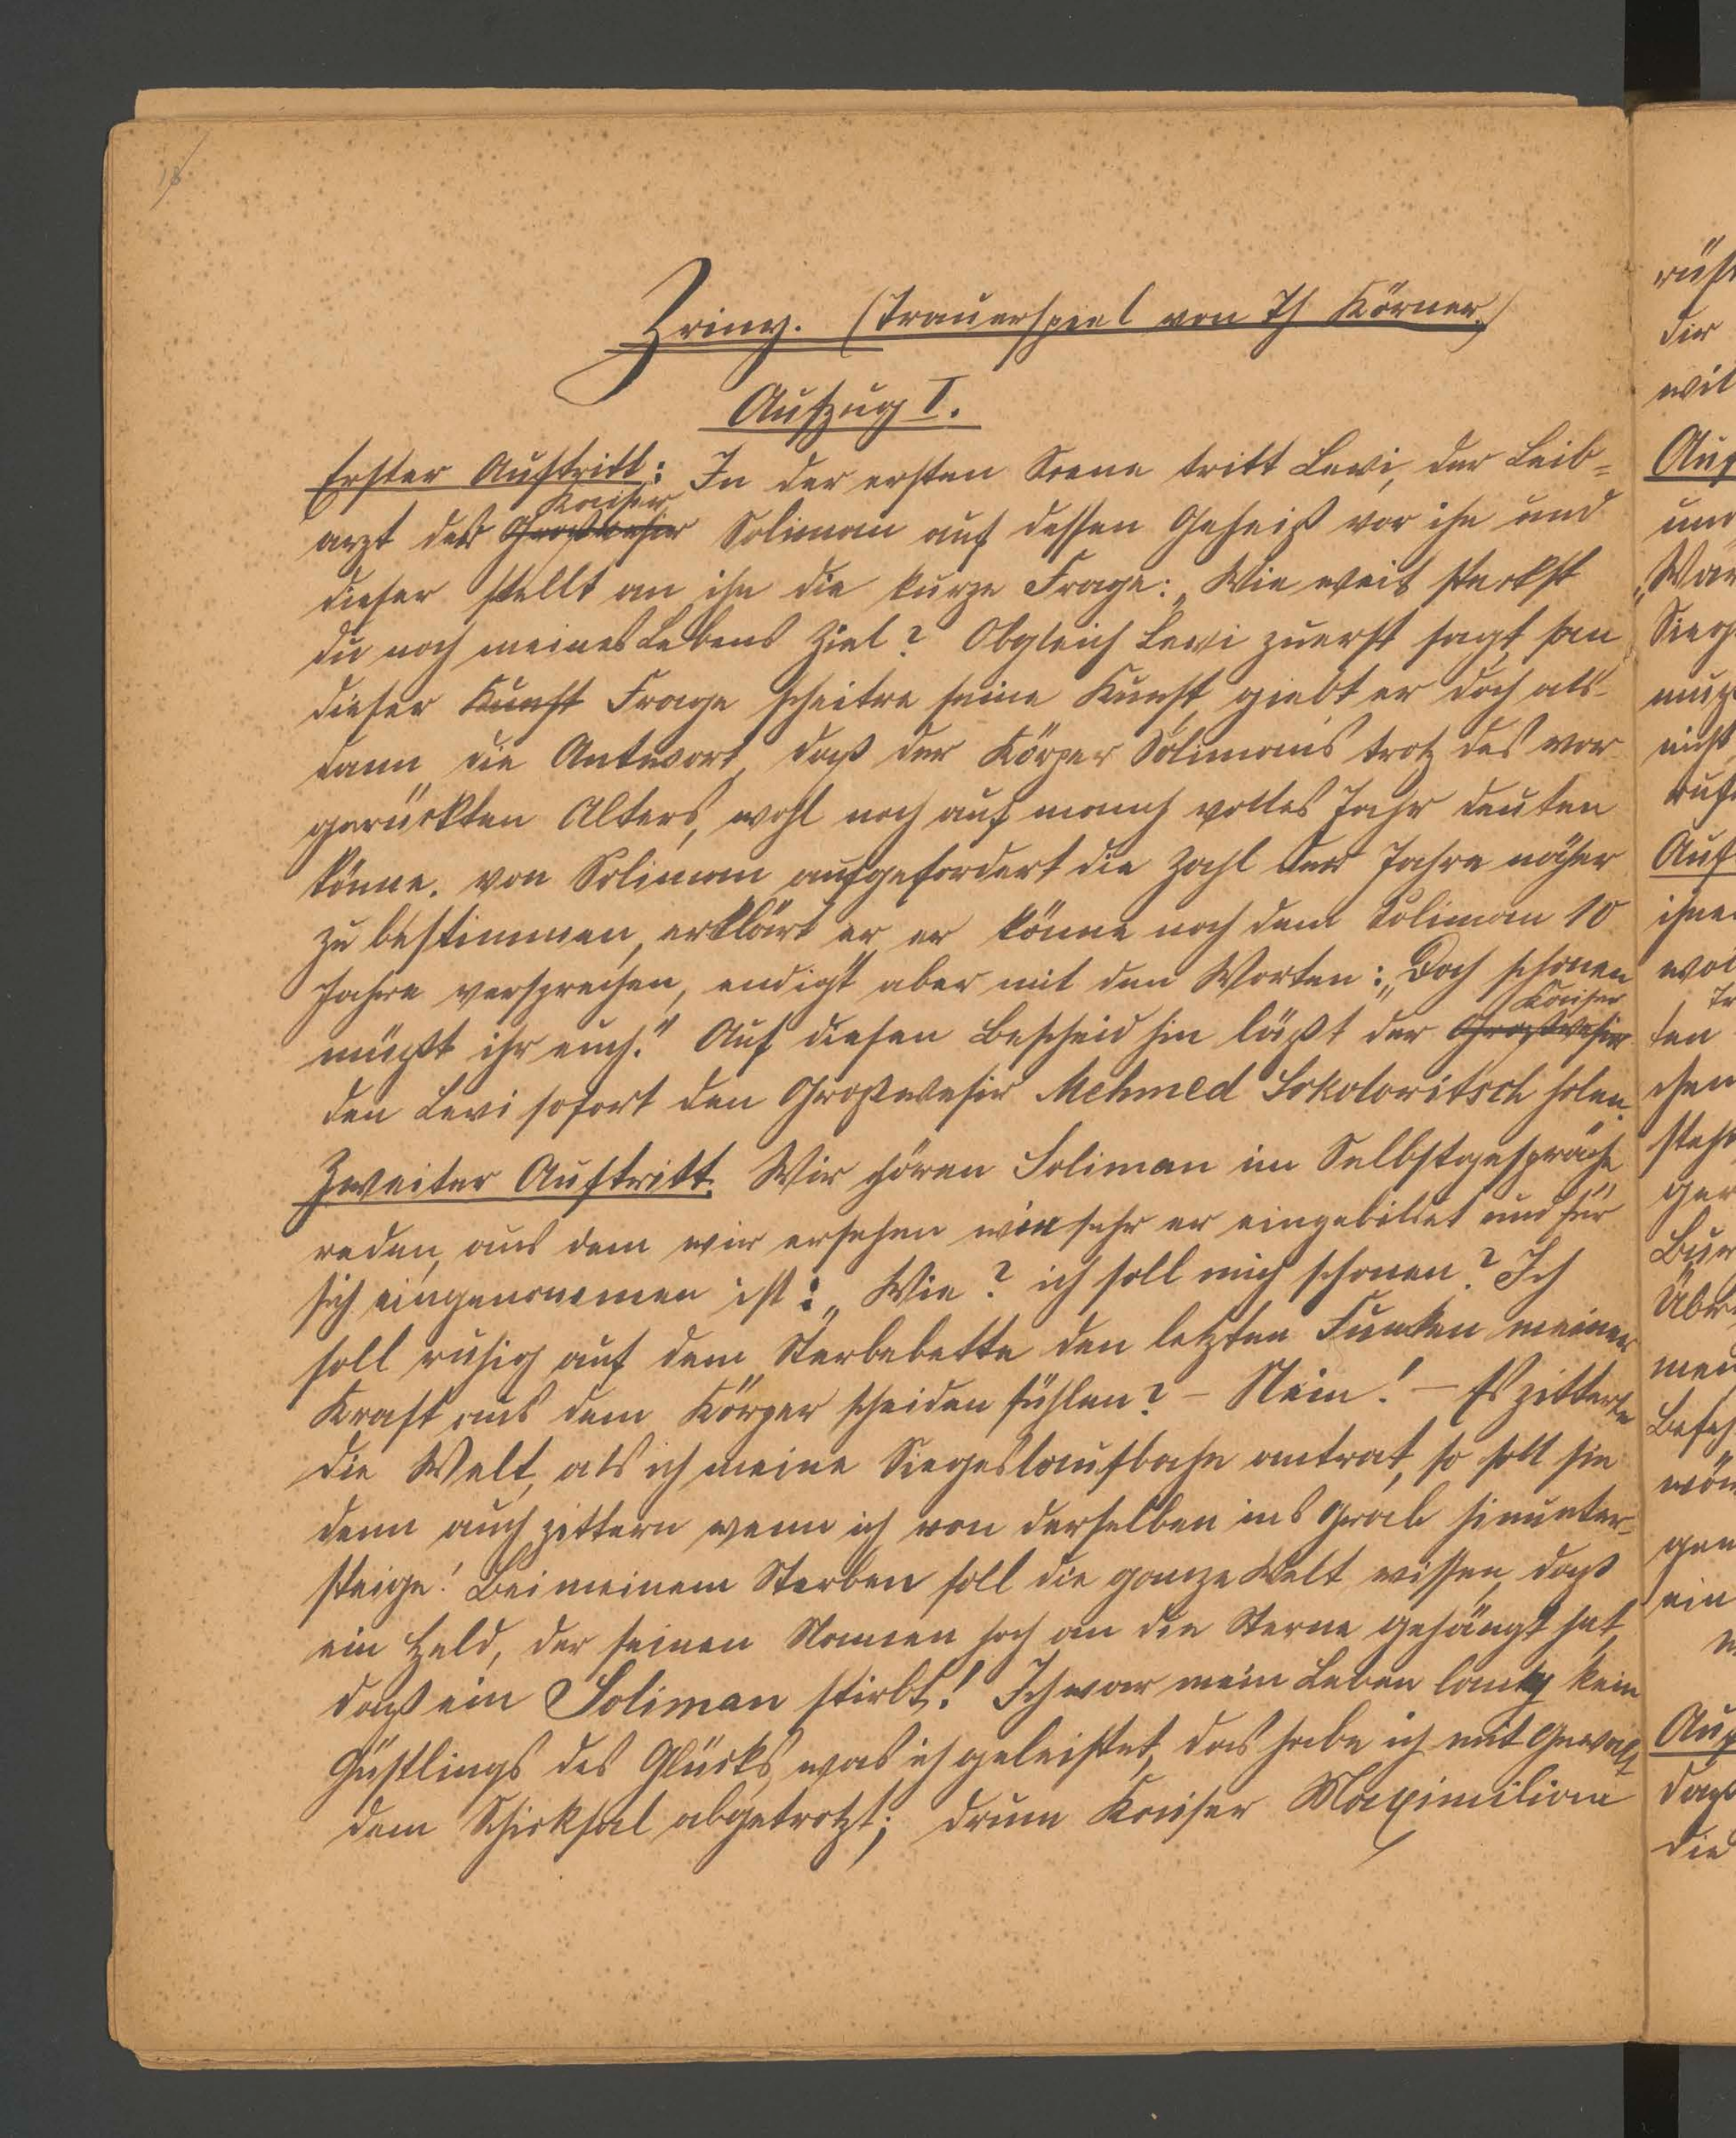 18
Zriny. (Trauerspiel von Th Körner.)
Aufzug I.
Erster Auftritt: In der ersten Scene tritt Levi, der Leib=
Kaiser
arzt des Großvesir Soliman auf dessen Geheiß vor ihn und
dieser stellt an ihn die kurze Frage: „Wie weit steckst
du noch meines Lebens Ziel? Obgleich Levi zuerst sagt, an
dieser Kunst Frage scheitre seine Kunst, giebt er doch als-
dann die Antwort, daß der Körper Solimans trotz des vor-
gerückten Alters, wohl noch auf manch volles Jahr deuten
könne. von Soliman aufgefordert die Zahl der Jahre näher
zu bestimmen, erklärt er, er könne noch dem Soliman 10
Jahre versprechen, endigt aber mit den Worten: „Doch schonen
Kaiser
müßt ihr euch." Auf diesen Bescheid hin läßt der Großvesir
den Levi sofort den Großvesir Mehmed Sokolovitsch holen.
Zweiter Auftritt. Wir hören Soliman im Selbstgespräche
reden, aus dem wir ersehen wie sehr er eingebildet und für
sich eingenommen ist: „Wie? ich soll mich schonen? Ich
soll ruhig auf dem Sterbebette den letzten Funken meiner
Kraft aus dem Körper scheiden fühlen? – Nein! – Es zitterte
die Welt, als ich meine Siegeslaufbahn antrat, so soll sie
denn auch zittern wenn ich von derselben ins Grab hinunter-
steige! Bei meinem Sterben soll die ganze Welt wissen, daß
ein Held, der seinen Namen hoch an die Sterne gehängt hat,
daß ein Soliman stirbt! Ich war mein Leben lang kein
Günstlings des Glücks, was ich geleistet, das habe ich mit Gewalt
dem Schicksal abgetrotzt; drum Kaiser Maximilian